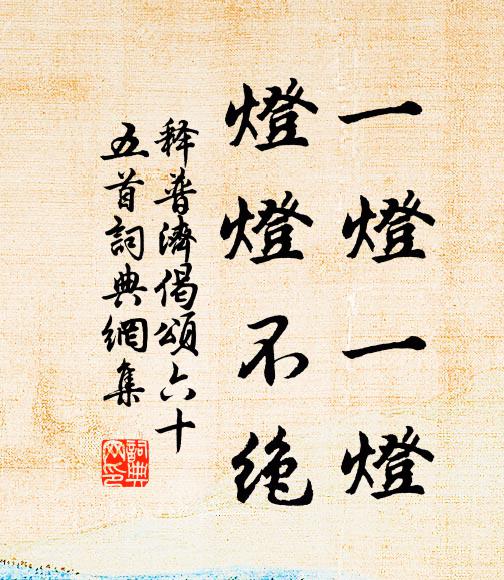 一燈一燈
燈燈不绝
释普濟偈頌六十
五首詞典網集
詞典
网印